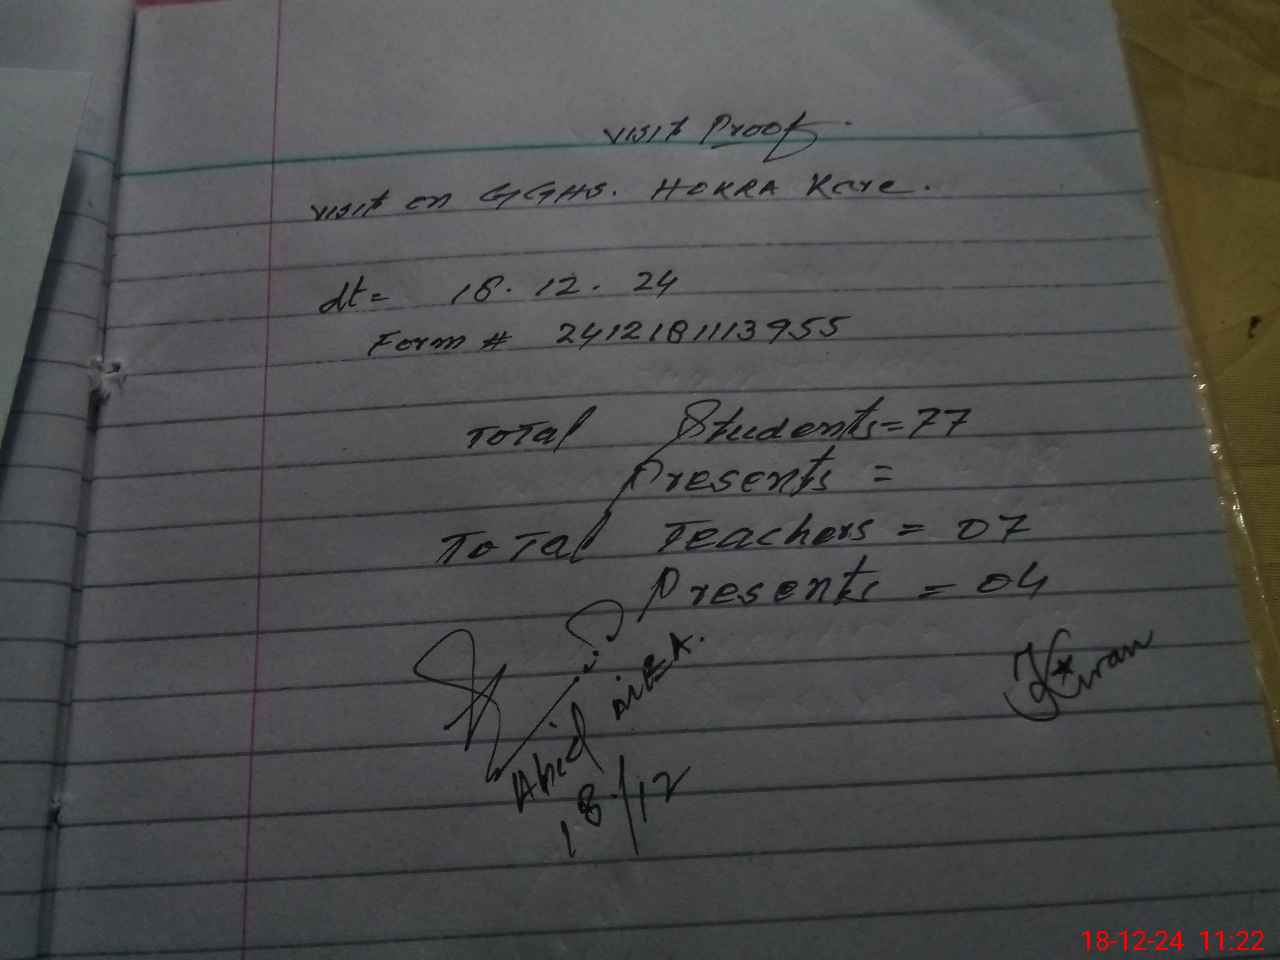 visit Proof.
visit on GGHS. HOKRA Kare.
dt= 18.12.24
Form # 2412181113955
Total Students=77
Presents =
Total Teachers = 07
Presents = 04
Abid
18/12
Kiran
18-12-24 11:22